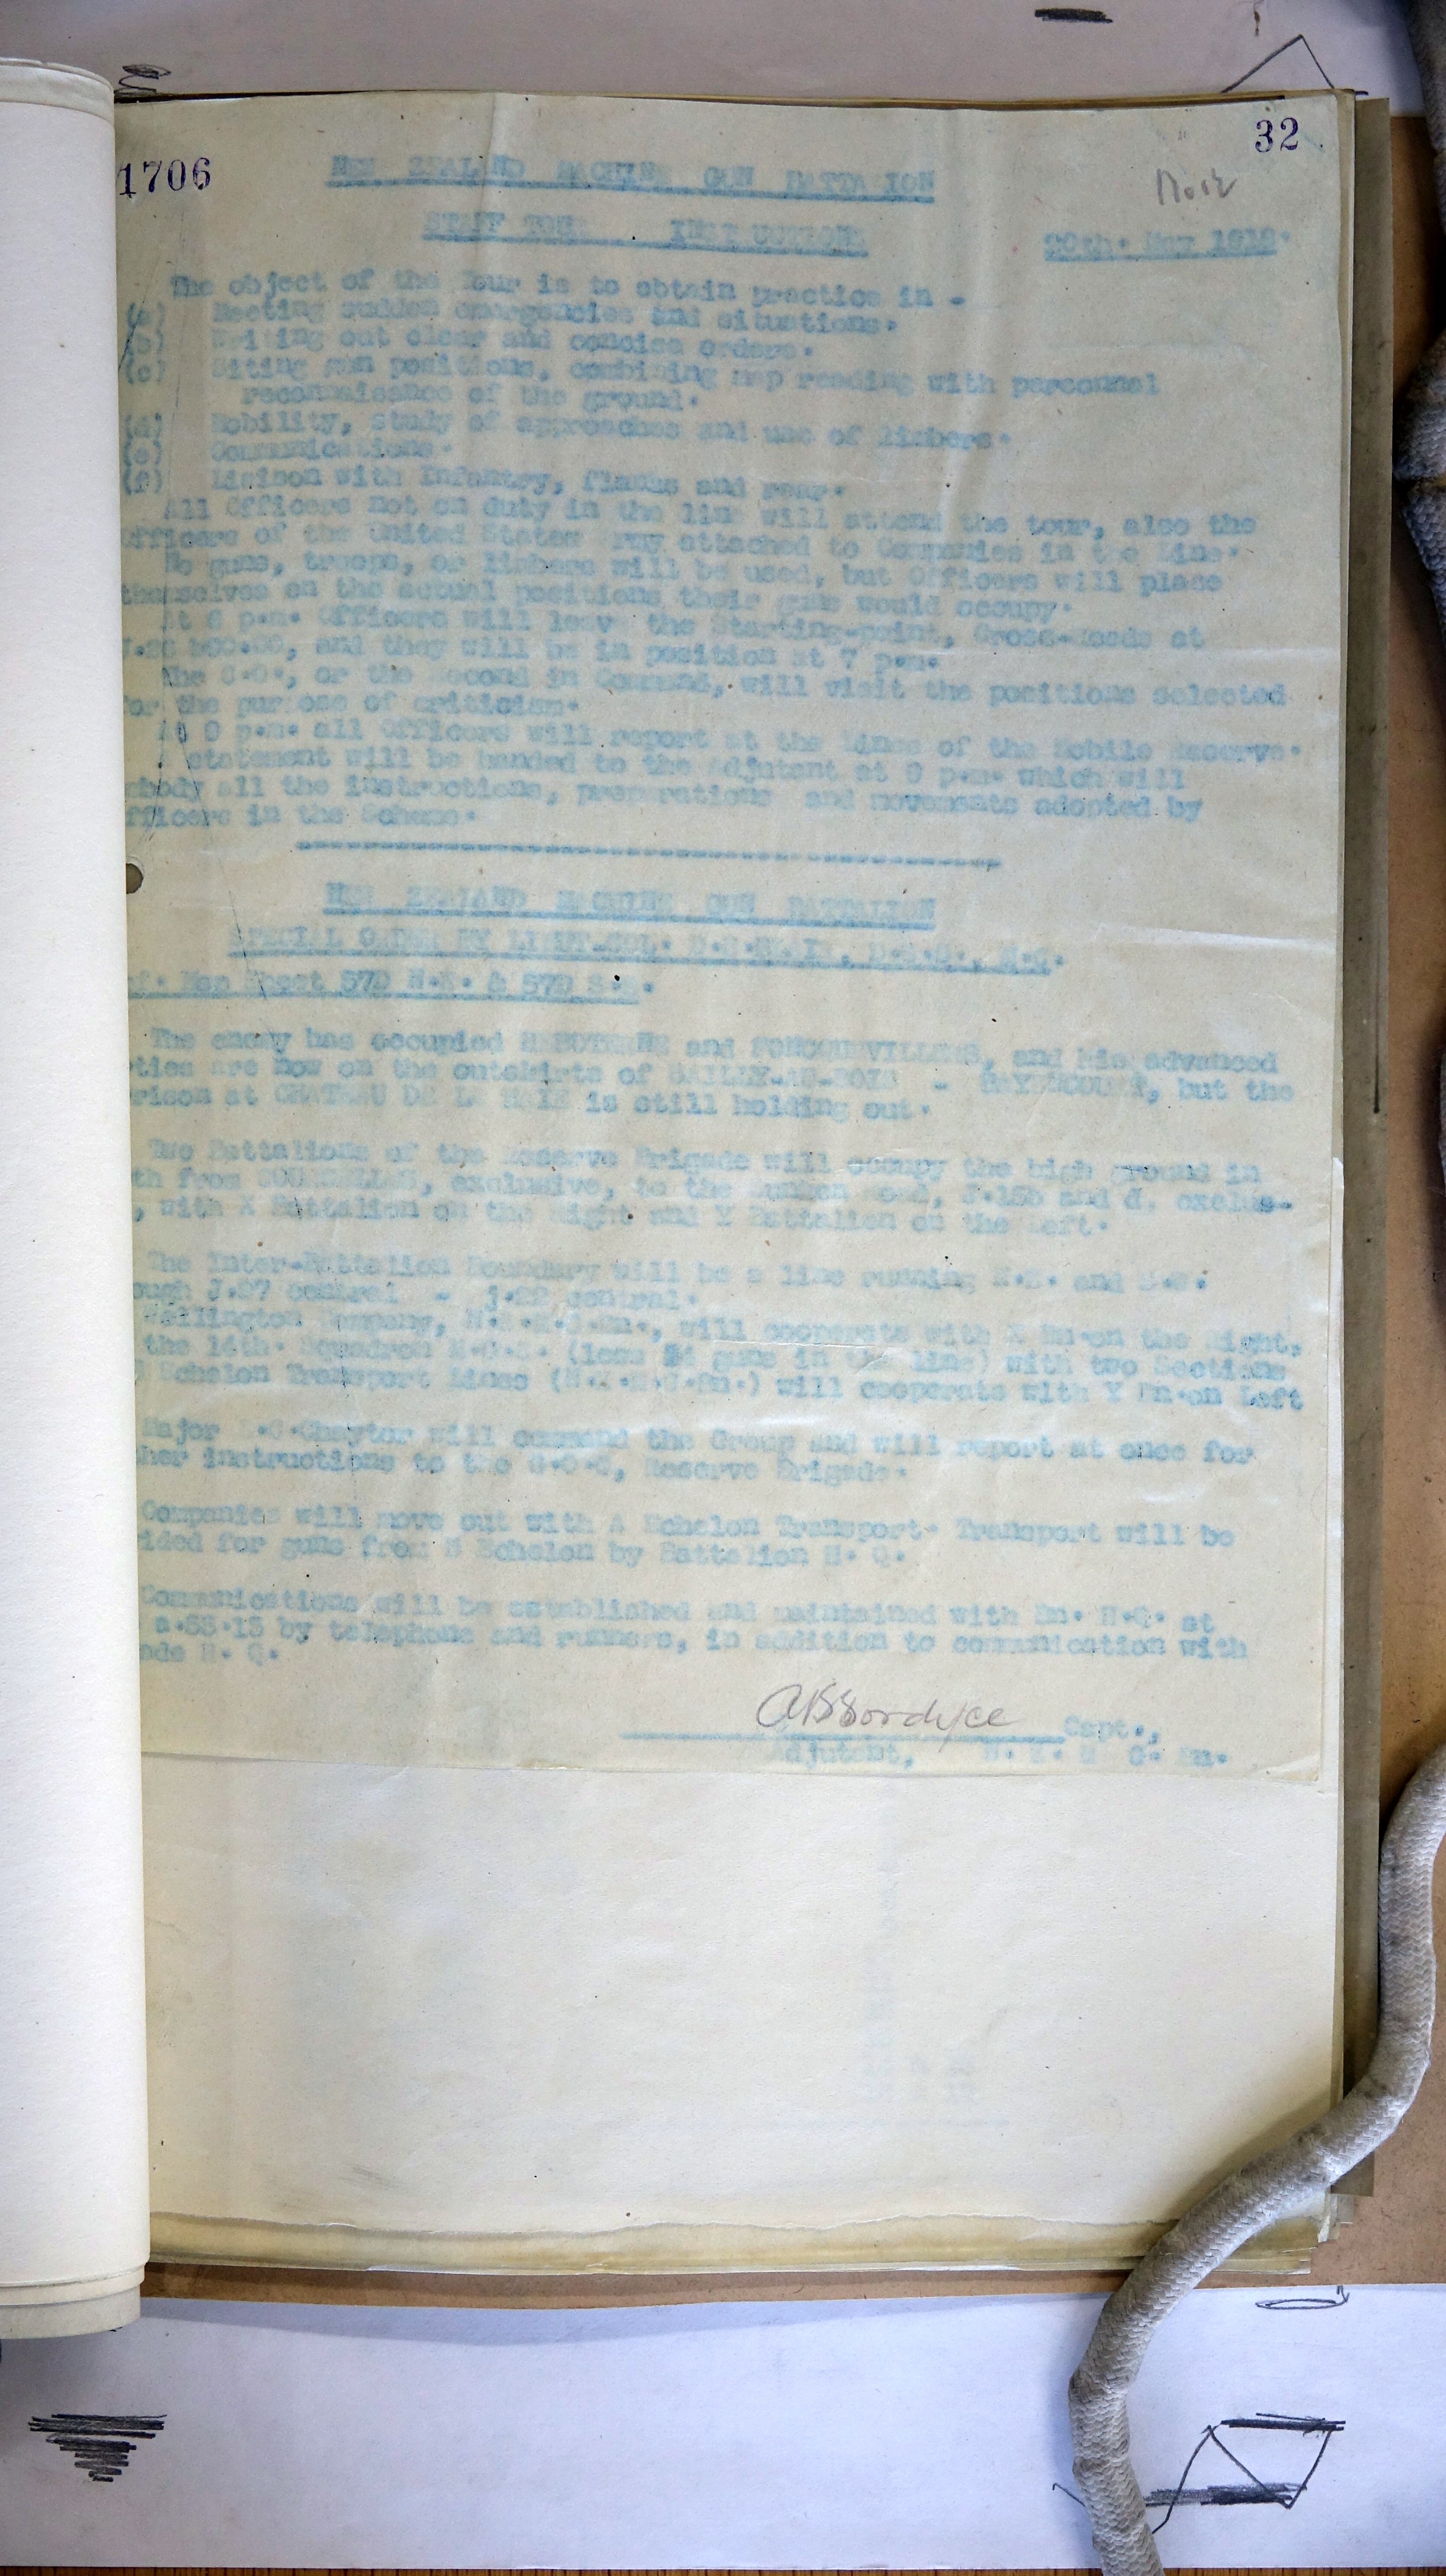 32
1706
NEW ZEALAND MACHINE GUN BATTALION
STAFF TOUR INSTRUCTIONS 20th. May 1918.
The object of the Tour is to obtain practice in -
(a) Meeting sudden emergencies and situations.
(b) Writing out clear and concise orders.
(c) Siting gun positions, combining map reading with personnal
reconnaisance of the ground.
(d) Mobility, study of approaches and use of limbers.
(e) Communications.
(f) Liaison with Infantry, flanks and rear.
All Officers not on duty in the line will attend the tour, also the
Officers of the United States Army attached to Companies in the Line.
No guns, troops, or limbers will be used, but Officers will place
themselves on the actual positions their guns would occupy.
At 6 p.m. Officers will leave the Starting-point, Cross-Roads at
and they will be in position at 7 p.m.
The C.O., or the Second in Command, will visit the positions selected
for the purpose of criticism.
At 9 p.m. all Officers will report at the Lines of the Mobile Reserve.
A statement will be handed to the Adjutant at 9 p.m. which will
mbody all the instructions, preparations and movements adopted by
fficers in the Scheme.
NEW ZEALAND MACHINE GUN BATTALION
SPECIAL ORDER BY LIEUT.COL. D.B.BLAIR, D.S.O., M.C.
f. Map Sheet 57D N.E. &
The enemy has occupied HEBUTERNE and FONCQUEVILLERS, and his advanced
rties are now on the outskirts of SAILLY-AU-BOIS - BAYENCOURT, but the
rison at CHATEAU DE LA HAIE is still holding out.
Two Battalions of the Reserve Brigade will occupy the high ground in
th from exclusive, to the Sunken Road, and d. exclus-
, with X Battalion on the Right and Y Battalion on the Left.
The Inter-Battalion Boundary will be a line running N.E. and S.W.
ough J.27 central - j.22 central.
Wellington Company, N.Z.M.G.Bn., will cooperate with X Bn.on the Right,
the 14th. Squadron M.G.S. (less 4 guns in the Line) with two Sections
Echelon Transport Lines (N.Z.M.G.Bn.) will cooperate with Y Bn.on Left
Major Chaytor will command the Group and will report at once for
her instructions to the G.O.C, Reserve Brigade.
Companies will move out with A Echelon Transport. Transport will be
ided for guns from B Echelon by Battalion H. Q.
Communications will be established and maintained with Bn. H.Q. at
a.65.15 by telephone and runners, in addition to communication with
ade H. Q.
Capt.,
Adjutant, N. Z. M G. Bn.